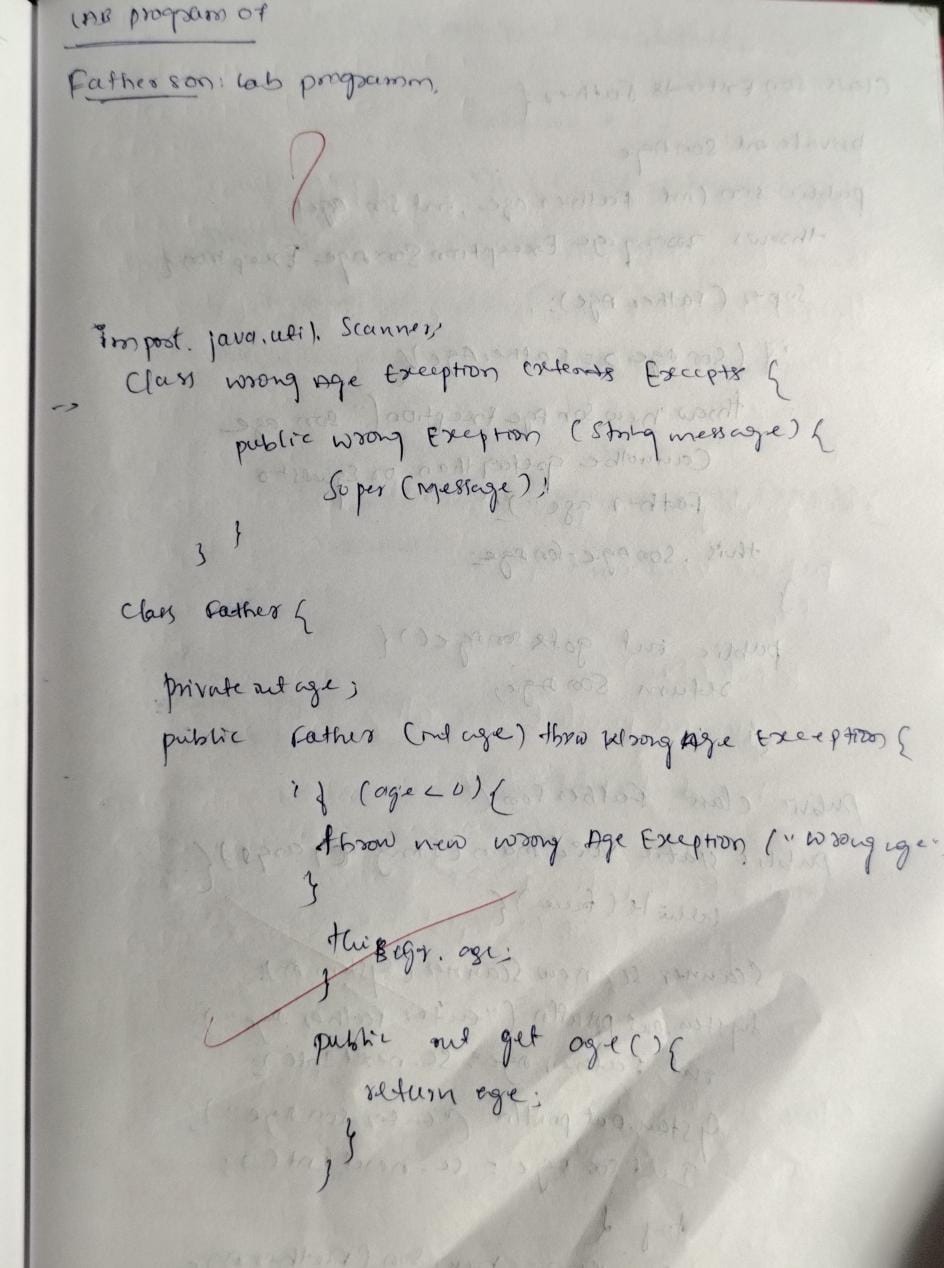 LAB program 07
Father son: lab programm.
?
import. java.util. Scanner;
Class wrong Age Exception extends Excepts {
public wrong Exception (String message) {
Super (message);
}
}
Class Father {
private int age;
public Father (int age) throw Wrong Age Exception {
if (age < 0) {
throw new wrong Age Exception ("wrong age"
}
age;
}
public int get age() {
return age;
}
}